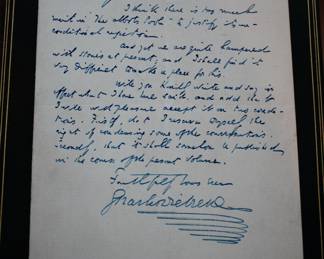 I think there is too much
merit in "The Abbots Pool" to justify its un-
conditional rejection.
And yet we are quite hampered
with stories at present, and I shall find it
very difficult to make a place for this.
Will you kindly write and say in
effect what I have said, and add that
I will with pleasure accept it on two condi-
tions. First, that I reserve myself the
right of condensing some of the conversations.
Secondly, that it shall somehow be published
in the course of the present volume.
Faithfully Yours ever
Charles Dickens